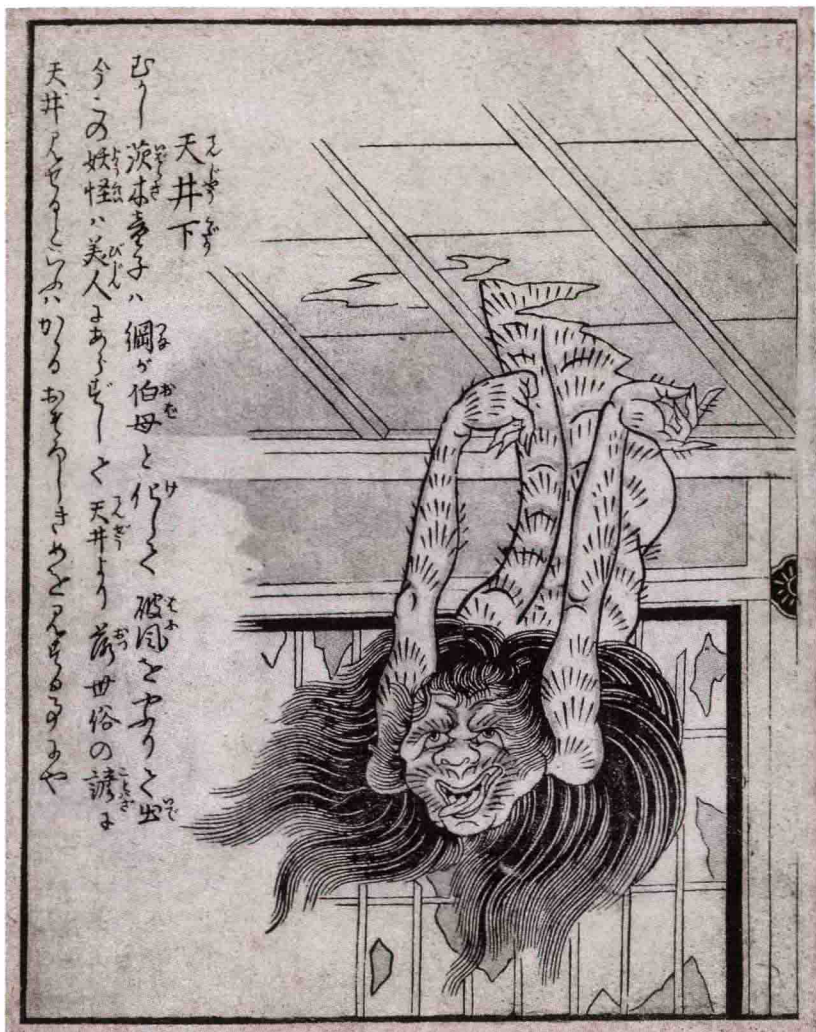 天井下
むかし茨木童子ハ綱が伯母と化して破風をやぶりて出
今この妖怪ハ美人にあらずして天井より落世俗の諺に
天井見せるといふハかゝるおそろしきめを見する事にや